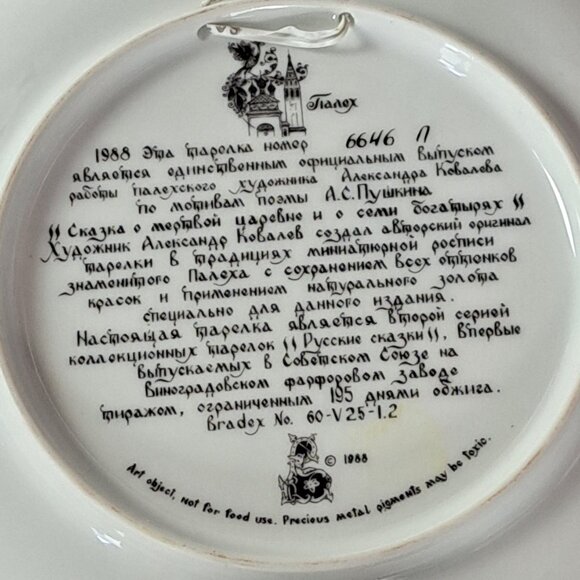 Палех
1988 Эта тарелка номер 6646 П
является единственным официальным выпуском
работы палехского художника Александра Ковалева
по мотивам поэмы А.С.Пушкина
"Сказка о мертвой царевне и о семи богатырях"
Художник Александр Ковалев создал авторский оригинал
тарелки в традициях миниатюрной росписи
знаменитого Палеха с сохранением всех оттенков
красок и применением натурального золота
специально для данного издания.
Настоящая тарелка является второй серией
коллекционных тарелок "Русские сказки", впервые
выпускаемых в Советском Союзе на
Виноградовском фарфоровом заводе
тиражом, ограниченным 195 днями обжига.
Bradex No. 60-V25-1.2
© 1988
Art object, not for food use. Precious metal pigments may be toxic.